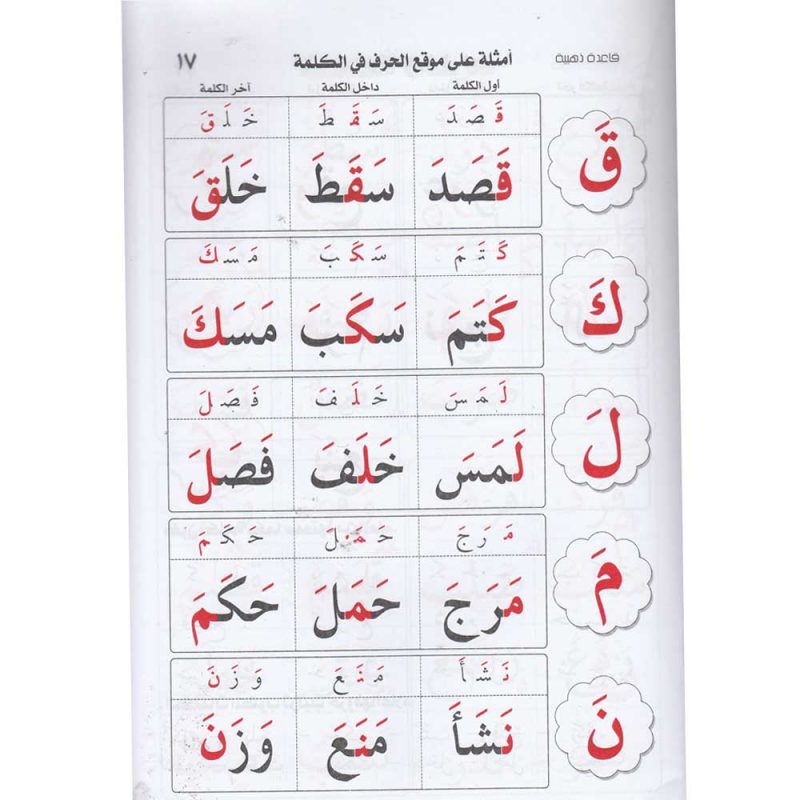 قاعدة ذهبية أمثلة على موقع الحرف في الكلمة ١٧
أول الكلمة داخل الكلمة آخر الكلمة
قَ صَ دَ سَ قَ طَ خَ لَ قَ
قَ
قَصَدَ سَقَطَ خَلَقَ
كَ تَ مَ سَ كَ بَ مَ سَ كَ
كَ
كَتَمَ سَكَبَ مَسَكَ
لَ مَ سَ خَ لَ فَ فَ صَ لَ
لَ
لَمَسَ خَلَفَ فَصَلَ
مَ رَ جَ حَ مَ لَ حَ كَ مَ
مَ
مَرَجَ حَمَلَ حَكَمَ
نَ شَ أَ مَ نَ عَ وَ زَ نَ
نَ
نَشَأَ مَنَعَ وَزَنَ